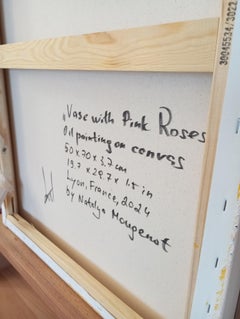 30045534/3022
„Vase with Pink Roses
Oil painting on canvas
50 x 70 x 3,7 cm
19.7 x 27.7 x 1.5 in
Lyon, France, 2024
by Natalya Mougenot